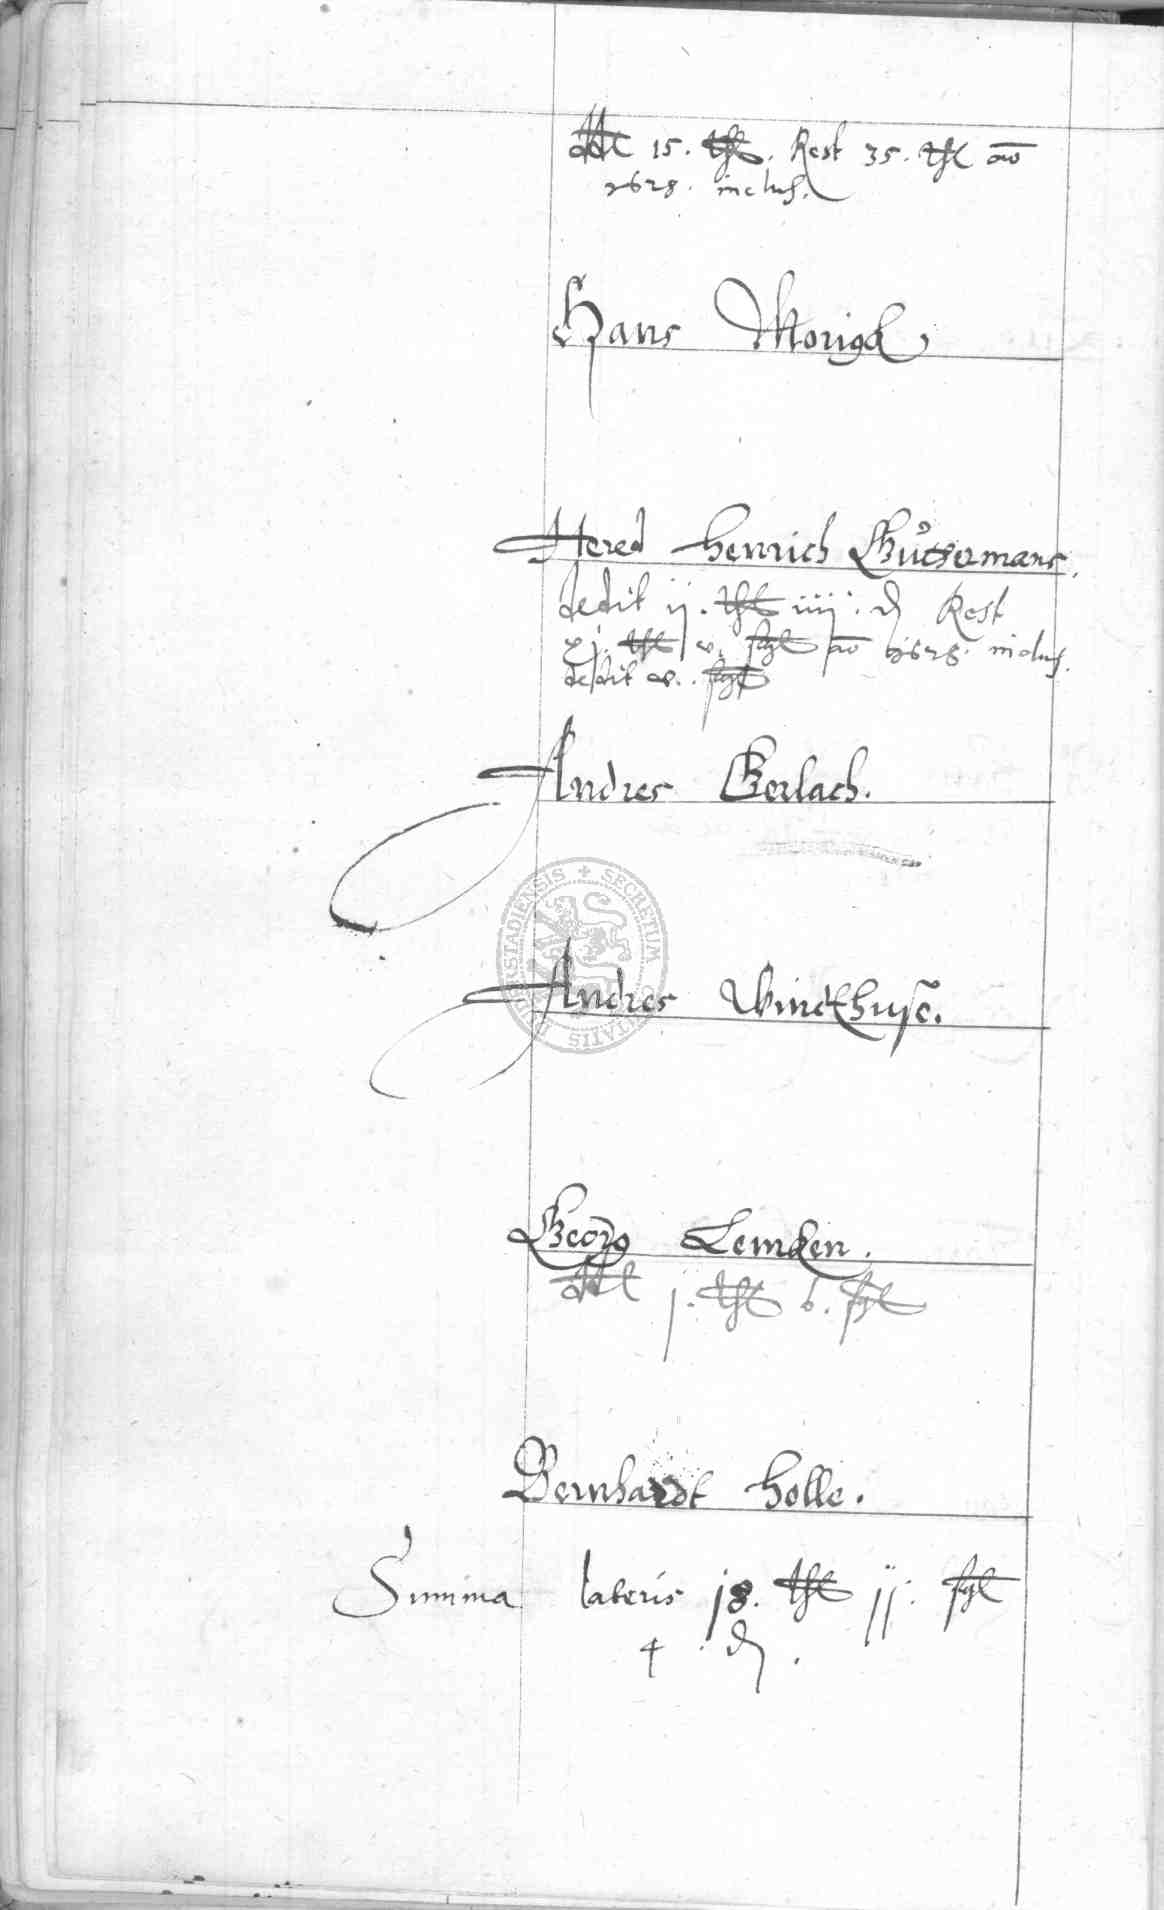 ddt 15. thl. Rest 35. thl ao
1628. inclus.
Hans Morigk
Hered Henrich Gütermans.
dedit ij. thl iiij. d Rest
xj. thl v. fgl ao 1628. inclus.
dedit fgl
Andres Gerlach.
SECRETUM CIVITATIS DUDERSTADIENSIS
Andres Windthusē.
Georg Lemken.
ddt j. thl 6. fgl
Bernhardt Holle.
Summa lateris 18. thl ij. fgl
4. d.